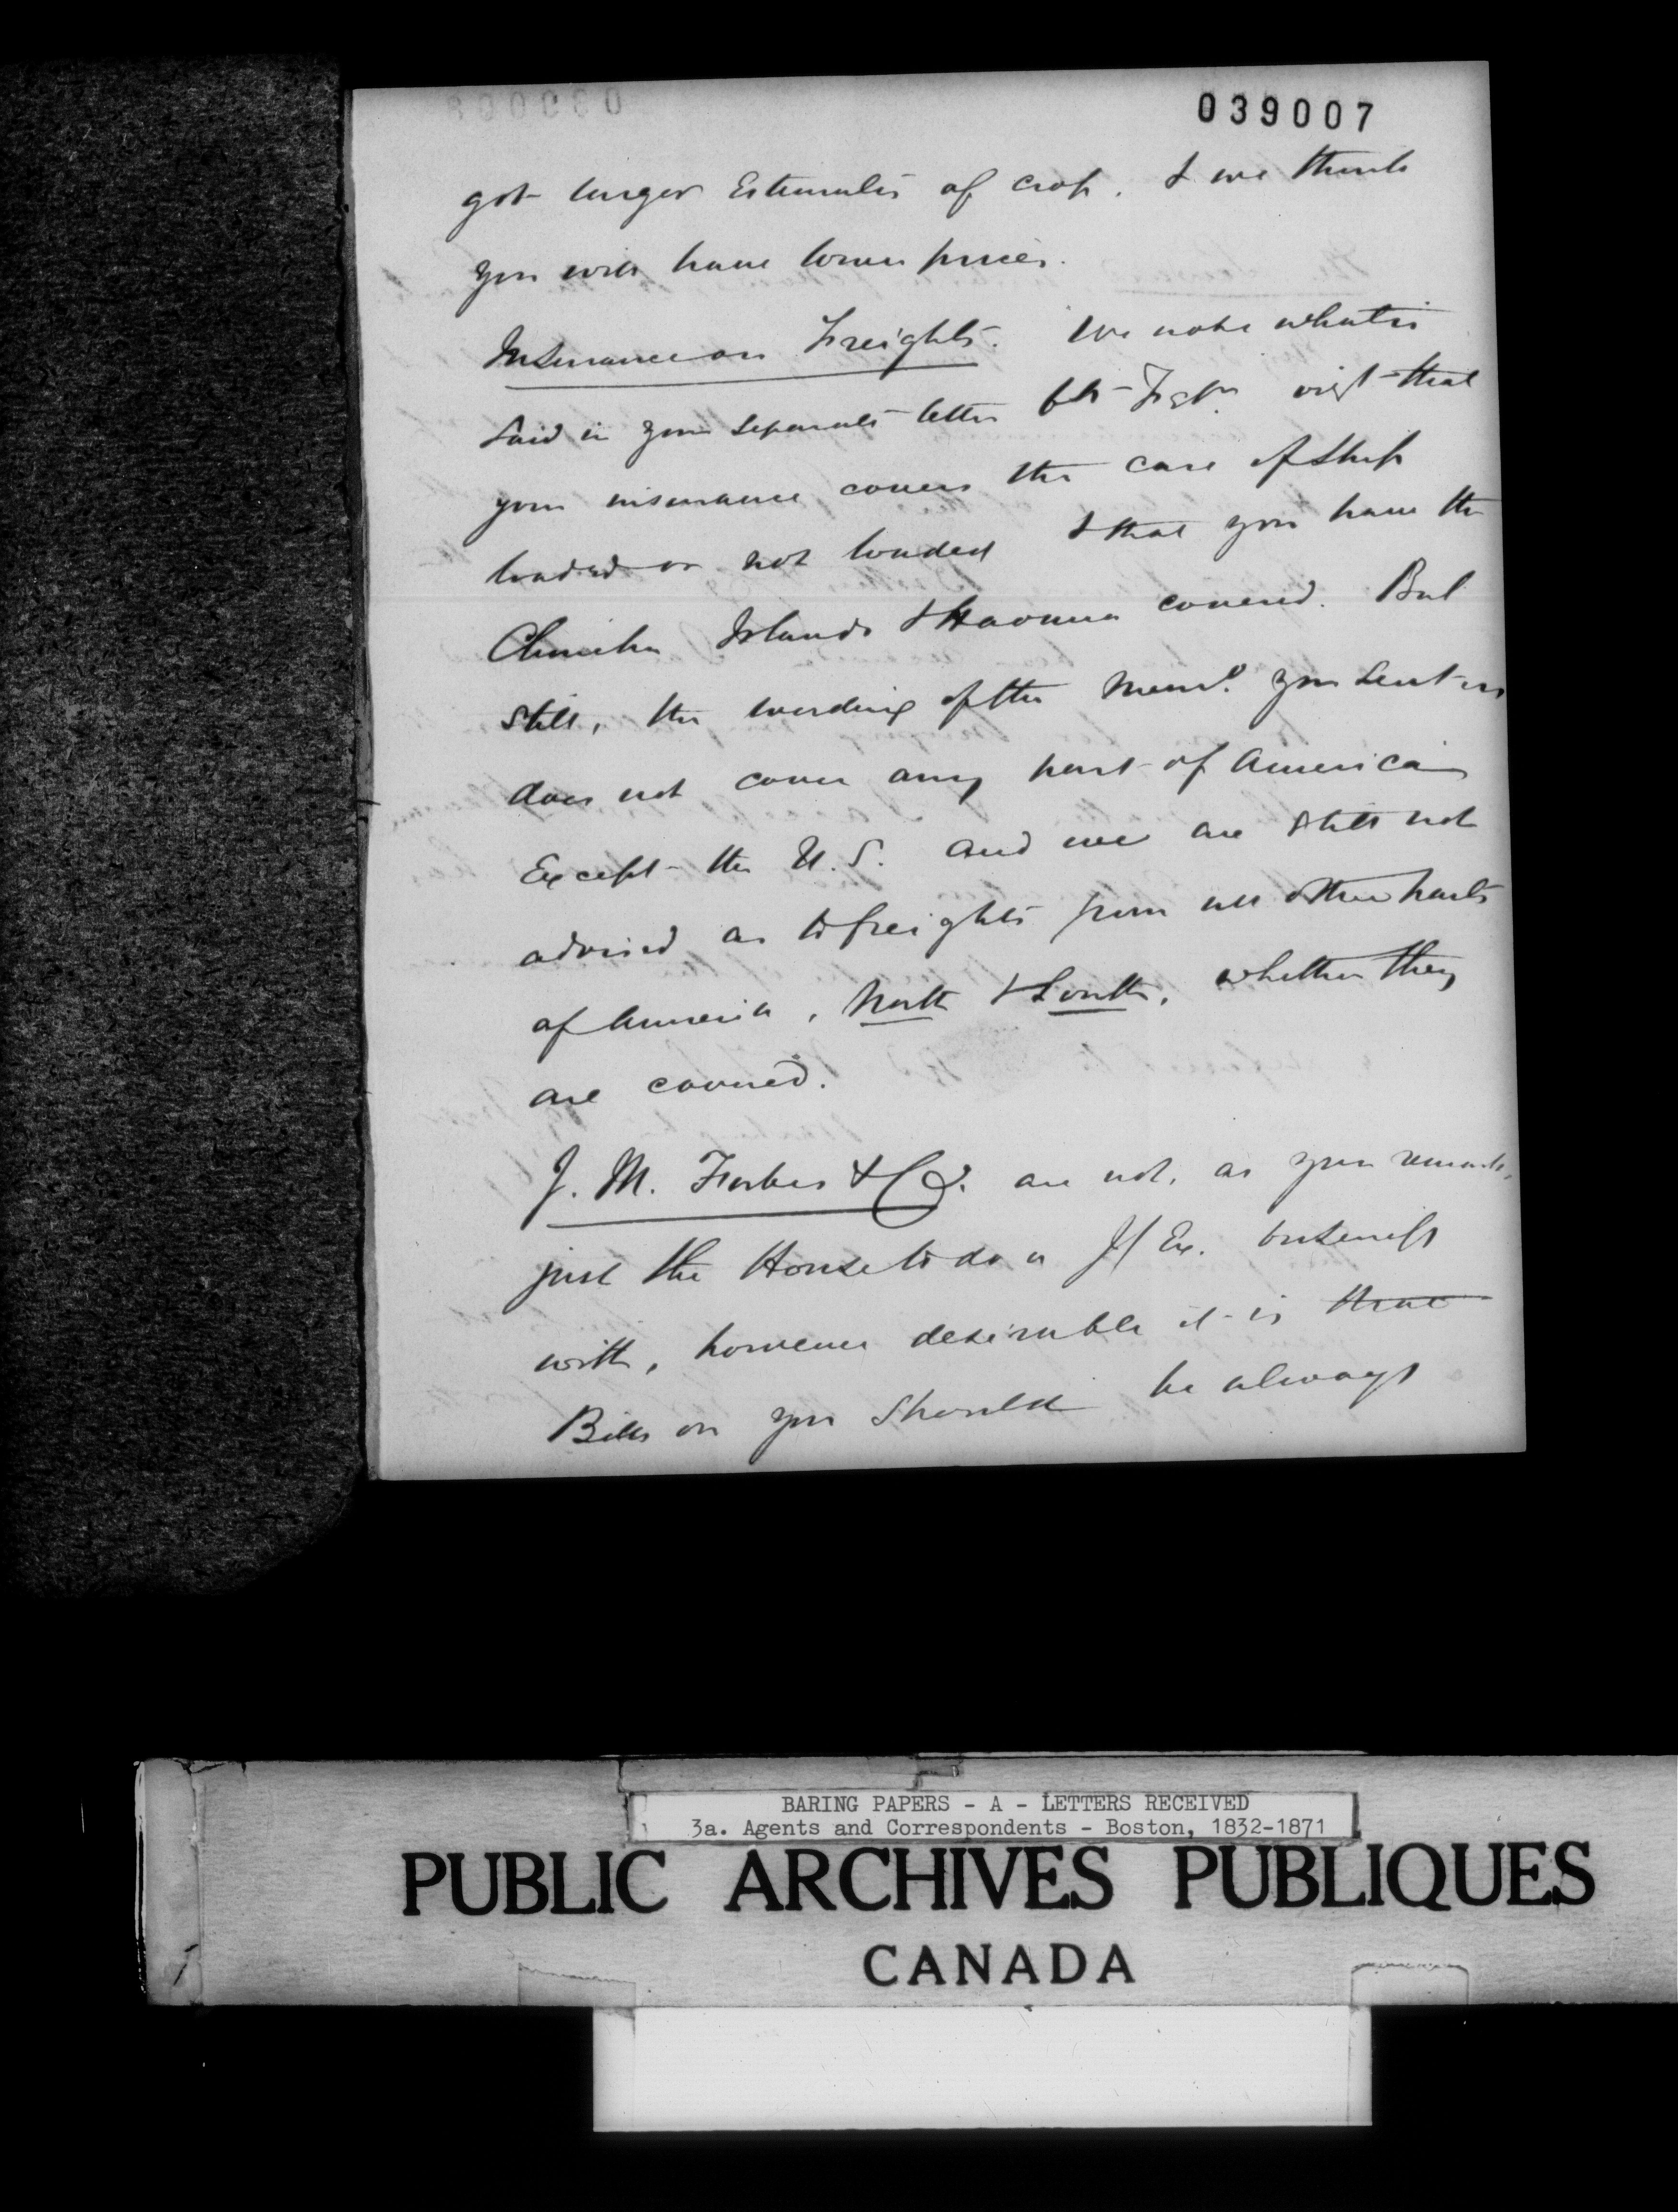 039007
got larger Estimates of crop. & we think
you will have lower prices.
Insurance on Freights. We note what is
said in your separate letter that
your insurance covers the case of Ship
loaded or not loaded & that you have the
Chincha Islands & Havana covered. But
still, the wording of the Memo. you sent us
does not cover any part of America
Except the U.S. and we are still not
advised as to freights from all other parts
of America, North & South, whether they
are covered.
J. M. Forbes & Co. are not, as you remark,
just the House to do a J/ Ex. business
with, however desirable it is that
Bills on you should be always
BARING PAPERS - A - LETTERS RECEIVED
3a. Agents and Correspondents - Boston, 1832-1871
PUBLIC ARCHIVES PUBLIQUES
CANADA